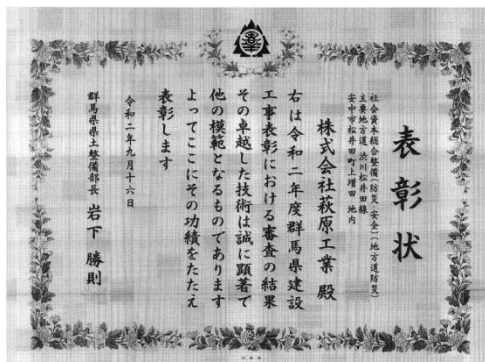 表彰状
社会資本総合整備(防災・安全)(地方道防災)
主要地方道 渋川松井田線
安中市松井田町上増田 地内
株式会社萩原工業 殿
右は令和二年度群馬県建設
工事表彰における審査の結果
その卓越した技術は誠に顕著で
他の模範となるものであります
よってここにその功績をたたえ
表彰します
令和二年九月十六日
群馬県県土整備部長 岩下 勝則